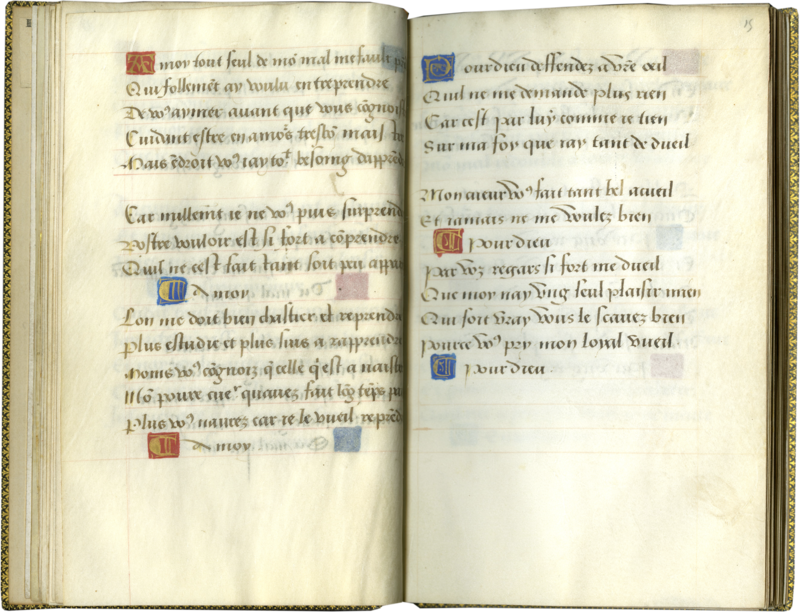 A moy tout seul de mõ mal me fault
Qui follemẽt ay voulu entreprendre
De vꝰ aymer auant que vous cõgnois
Cuidant estre en amõs tresto mais
Mais ẽdroit vꝰ iay toᵗ besoing dapprẽd
Car nullemẽt ie ne vꝰ puis surprend
Vostre vouloir est si fort a cõprendre
Quil ne cest fait tant soit peu appa
A moy
Lon me doit bien chastier et reprendre
Plus estudie et plus suis a rapprendre
Moins vꝰ cõgnoiz q̃lle q̃ est a naist
Mõ poure cueʳ quauez fait lõg tẽps
Plus vꝰ naurez car ie le vueil reprẽd
A moy
15
Pour dieu deffendez a vr̃e oeil
Quil ne me demande plus rien
Car cest par luy comme ie tien
Sur ma foy que iay tant de dueil
Mon cueur vꝰ fait tant bel acueil
Et iamais ne me voulez bien
Pour dieu
Par voz regars si fort me dueil
Que moy nay vng seul plaisir mien
Qui sort vray vous le scauez bien
Pource vꝰ pry mon loyal vueil
Pour dieu